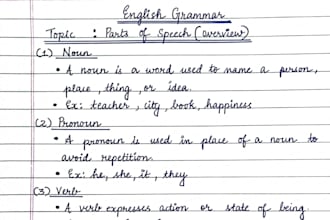 English Grammar
Topic : Parts of Speech (overview)
(1) Noun
• A noun is a word used to name a person,
place, thing, or idea.
• Ex: teacher, city, book, happiness
(2) Pronoun
• A pronoun is used in place of a noun to
avoid repetition.
• Ex: he, she, it, they
(3) Verb
• A verb expresses action or state of being.